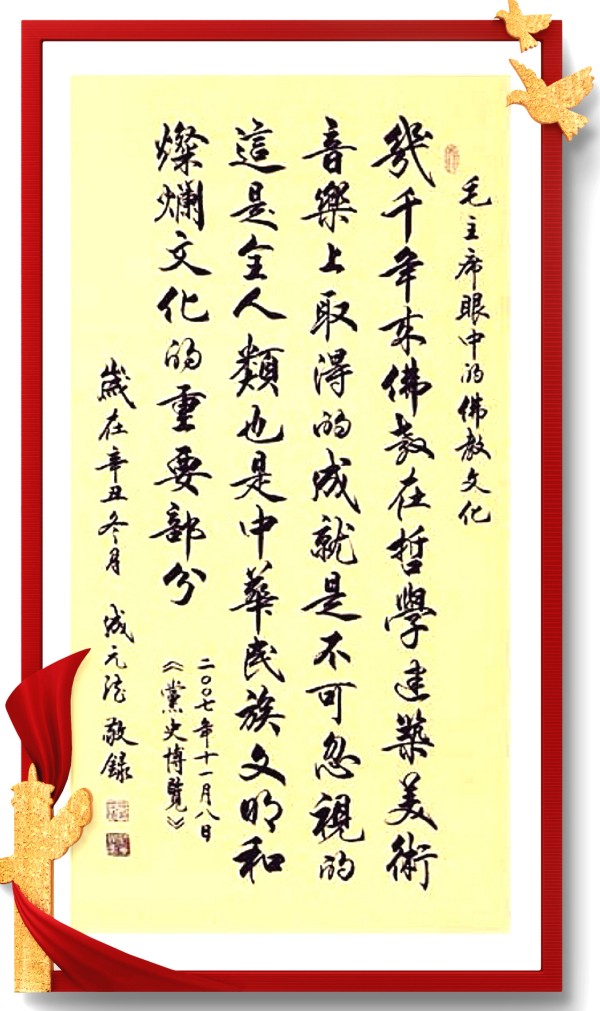 毛主席眼中的佛教文化
幾千年來佛教在哲學建築美術
音樂上取得的成就是不可忽視的
這是全人類也是中華民族文明和
燦爛文化的重要部分
二〇〇七年十一月八日
《黨史博覽》
歲在辛丑冬月 成元 敬錄